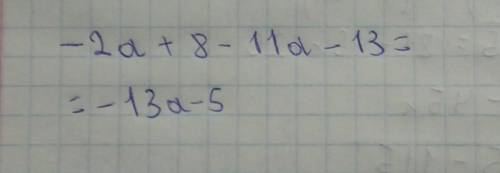 -2a + 8 - 11a - 13 =
= -13a - 5